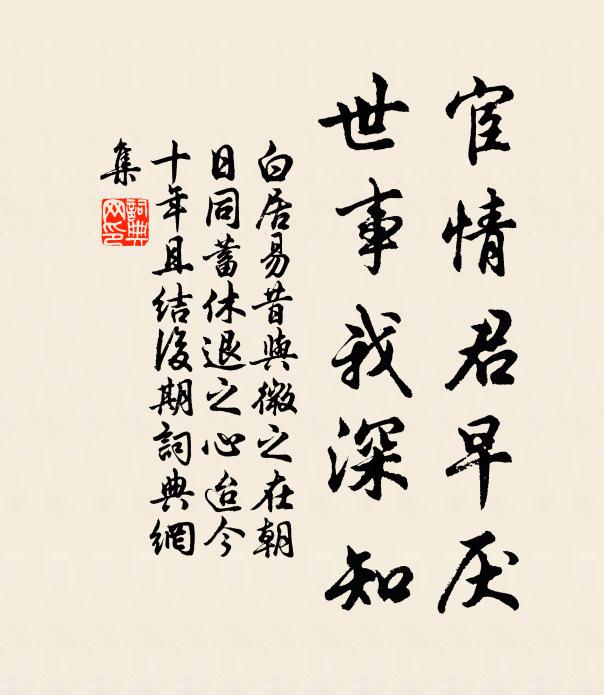 宦情君早厌
世事我深知
白居易昔與微之在朝
日同蓄休退之心迨今
十年且结後期詞典網
集
詞典
网印